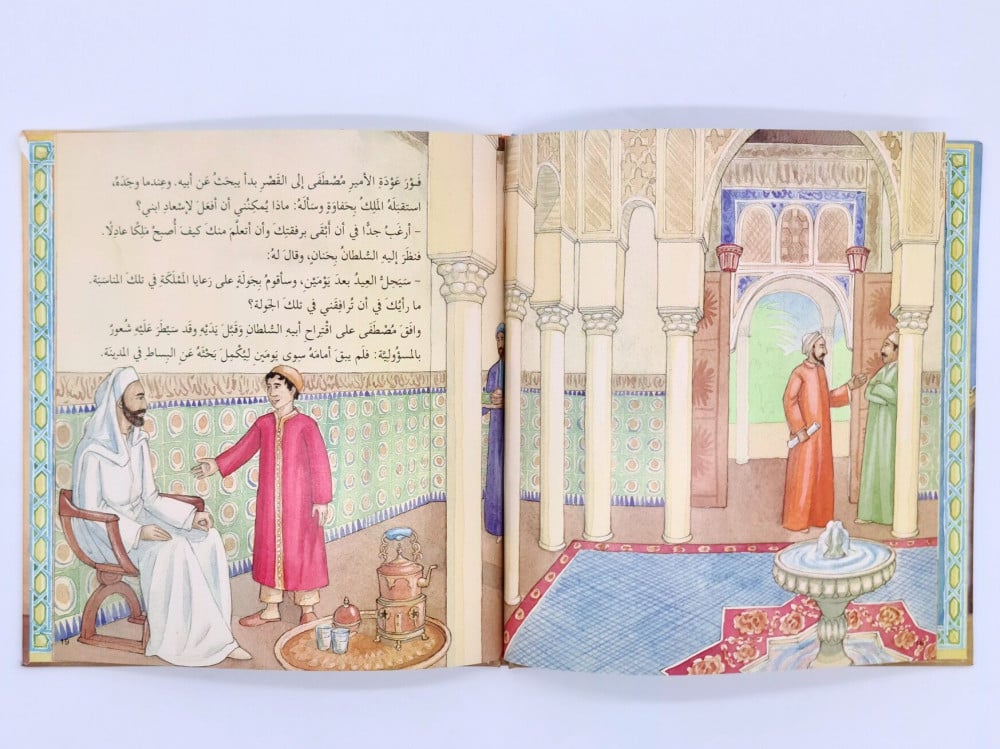 فَـوْرَ عَوْدَةِ الأمير مُصْطَفَى إلى القَصْر بدأ يبحَثُ عَن أبيه. وعِندما وجَدَهُ،
استقبَلَهُ المَلِكُ بِحَفاوَةٍ وسألَهُ: ماذا يُمكِنُني أن أفعَلَ لإسْعادِ ابني؟
– أرغَبُ جدًّا في أن أبْقَى برفقتِكَ وأن أتعلَّمَ منكَ كيفَ أُصبحُ مَلِكًا عادِلًا.
فنظرَ إليهِ السُّلطانُ بِحَنانٍ، وقالَ لهُ:
– سَيَحِلُّ العِيدُ بعدَ يَوْمَيْنِ، وسأقومُ بِجَولَةٍ على رَعايا المَمْلَكَةِ في تلكَ المناسَبَة.
ما رأيُكَ في أن تُرافِقَني في تلكَ الجَولة؟
وافَقَ مُصْطَفَى على اقْتِراحِ أبيه السُّلطانِ وَقَبَّلَ يَدَيْهِ وقد سَيْطَرَ عَلَيْهِ شُعورٌ
بالمسؤوليَّة: فلم يبقَ أمامَهُ سِوى يومَينِ لِيُكْمِلَ بَحْثَهُ عَنِ البِساط في المدينَة.
١٩